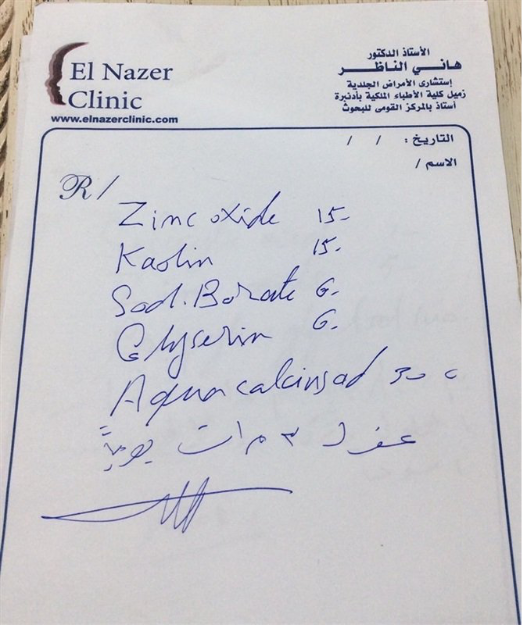 El Nazer
Clinic
www.elnazerclinic.com
الأستاذ الدكتور
هاني الناظر
إستشارى الأمراض الجلدية
زميل كلية الأطباء الملكية بأدنبرة
أستاذ بالمركز القومى للبحوث
التاريخ : / /
الاسم /
R/
Zinc oxide 15-
Kaolin 15-
Sod. Borate 6-
Glyserin 6-
Aqua calcis ad 30
٣ مرات يومياً